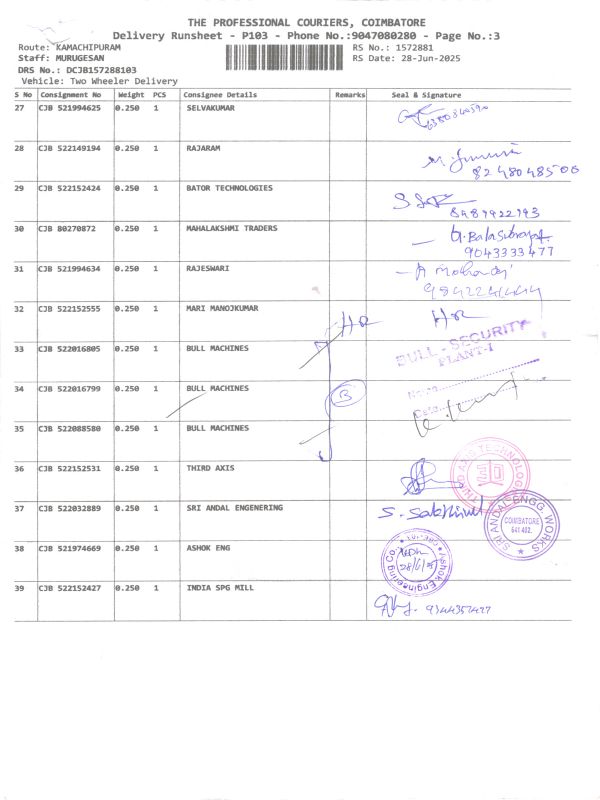 THE PROFESSIONAL COURIERS, COIMBATORE
Delivery Runsheet - P103 - Phone No.:9047080280 - Page No.:3
Route: KAMACHIPURAM RS No.: 1572881
Staff: MURUGESAN RS Date: 28-Jun-2025
DRS No.: DCJB157288103
Vehicle: Two Wheeler Delivery
S No Consignment No Weight PCS Consignee Details Remarks Seal & Signature
27 CJB 521994625 0.250 1 SELVAKUMAR
28 CJB 522149194 0.250 1 RAJARAM
8248048500
29 CJB 522152424 0.250 1 BATOR TECHNOLOGIES
8489922793
30 CJB 80270872 0.250 1 MAHALAKSHMI TRADERS
9043333477
31 CJB 521994634 0.250 1 RAJESWARI
32 CJB 522152555 0.250 1 MARI MANOJKUMAR
HR HR
33 CJB 522016805 0.250 1 BULL MACHINES BULL - SECURITY
PLANT-I
34 CJB 522016799 0.250 1 BULL MACHINES
B
Date
35 CJB 522088580 0.250 1 BULL MACHINES
36 CJB 522152531 0.250 1 THIRD AXIS
37 CJB 522032889 0.250 1 SRI ANDAL ENGENERING
SRI ANDAL ENGG. WORKS
COIMBATORE
641 402.
38 CJB 521974669 0.250 1 ASHOK ENG
Ashok Engineering Co.
28/6/25
39 CJB 522152427 0.250 1 INDIA SPG MILL
9344357477